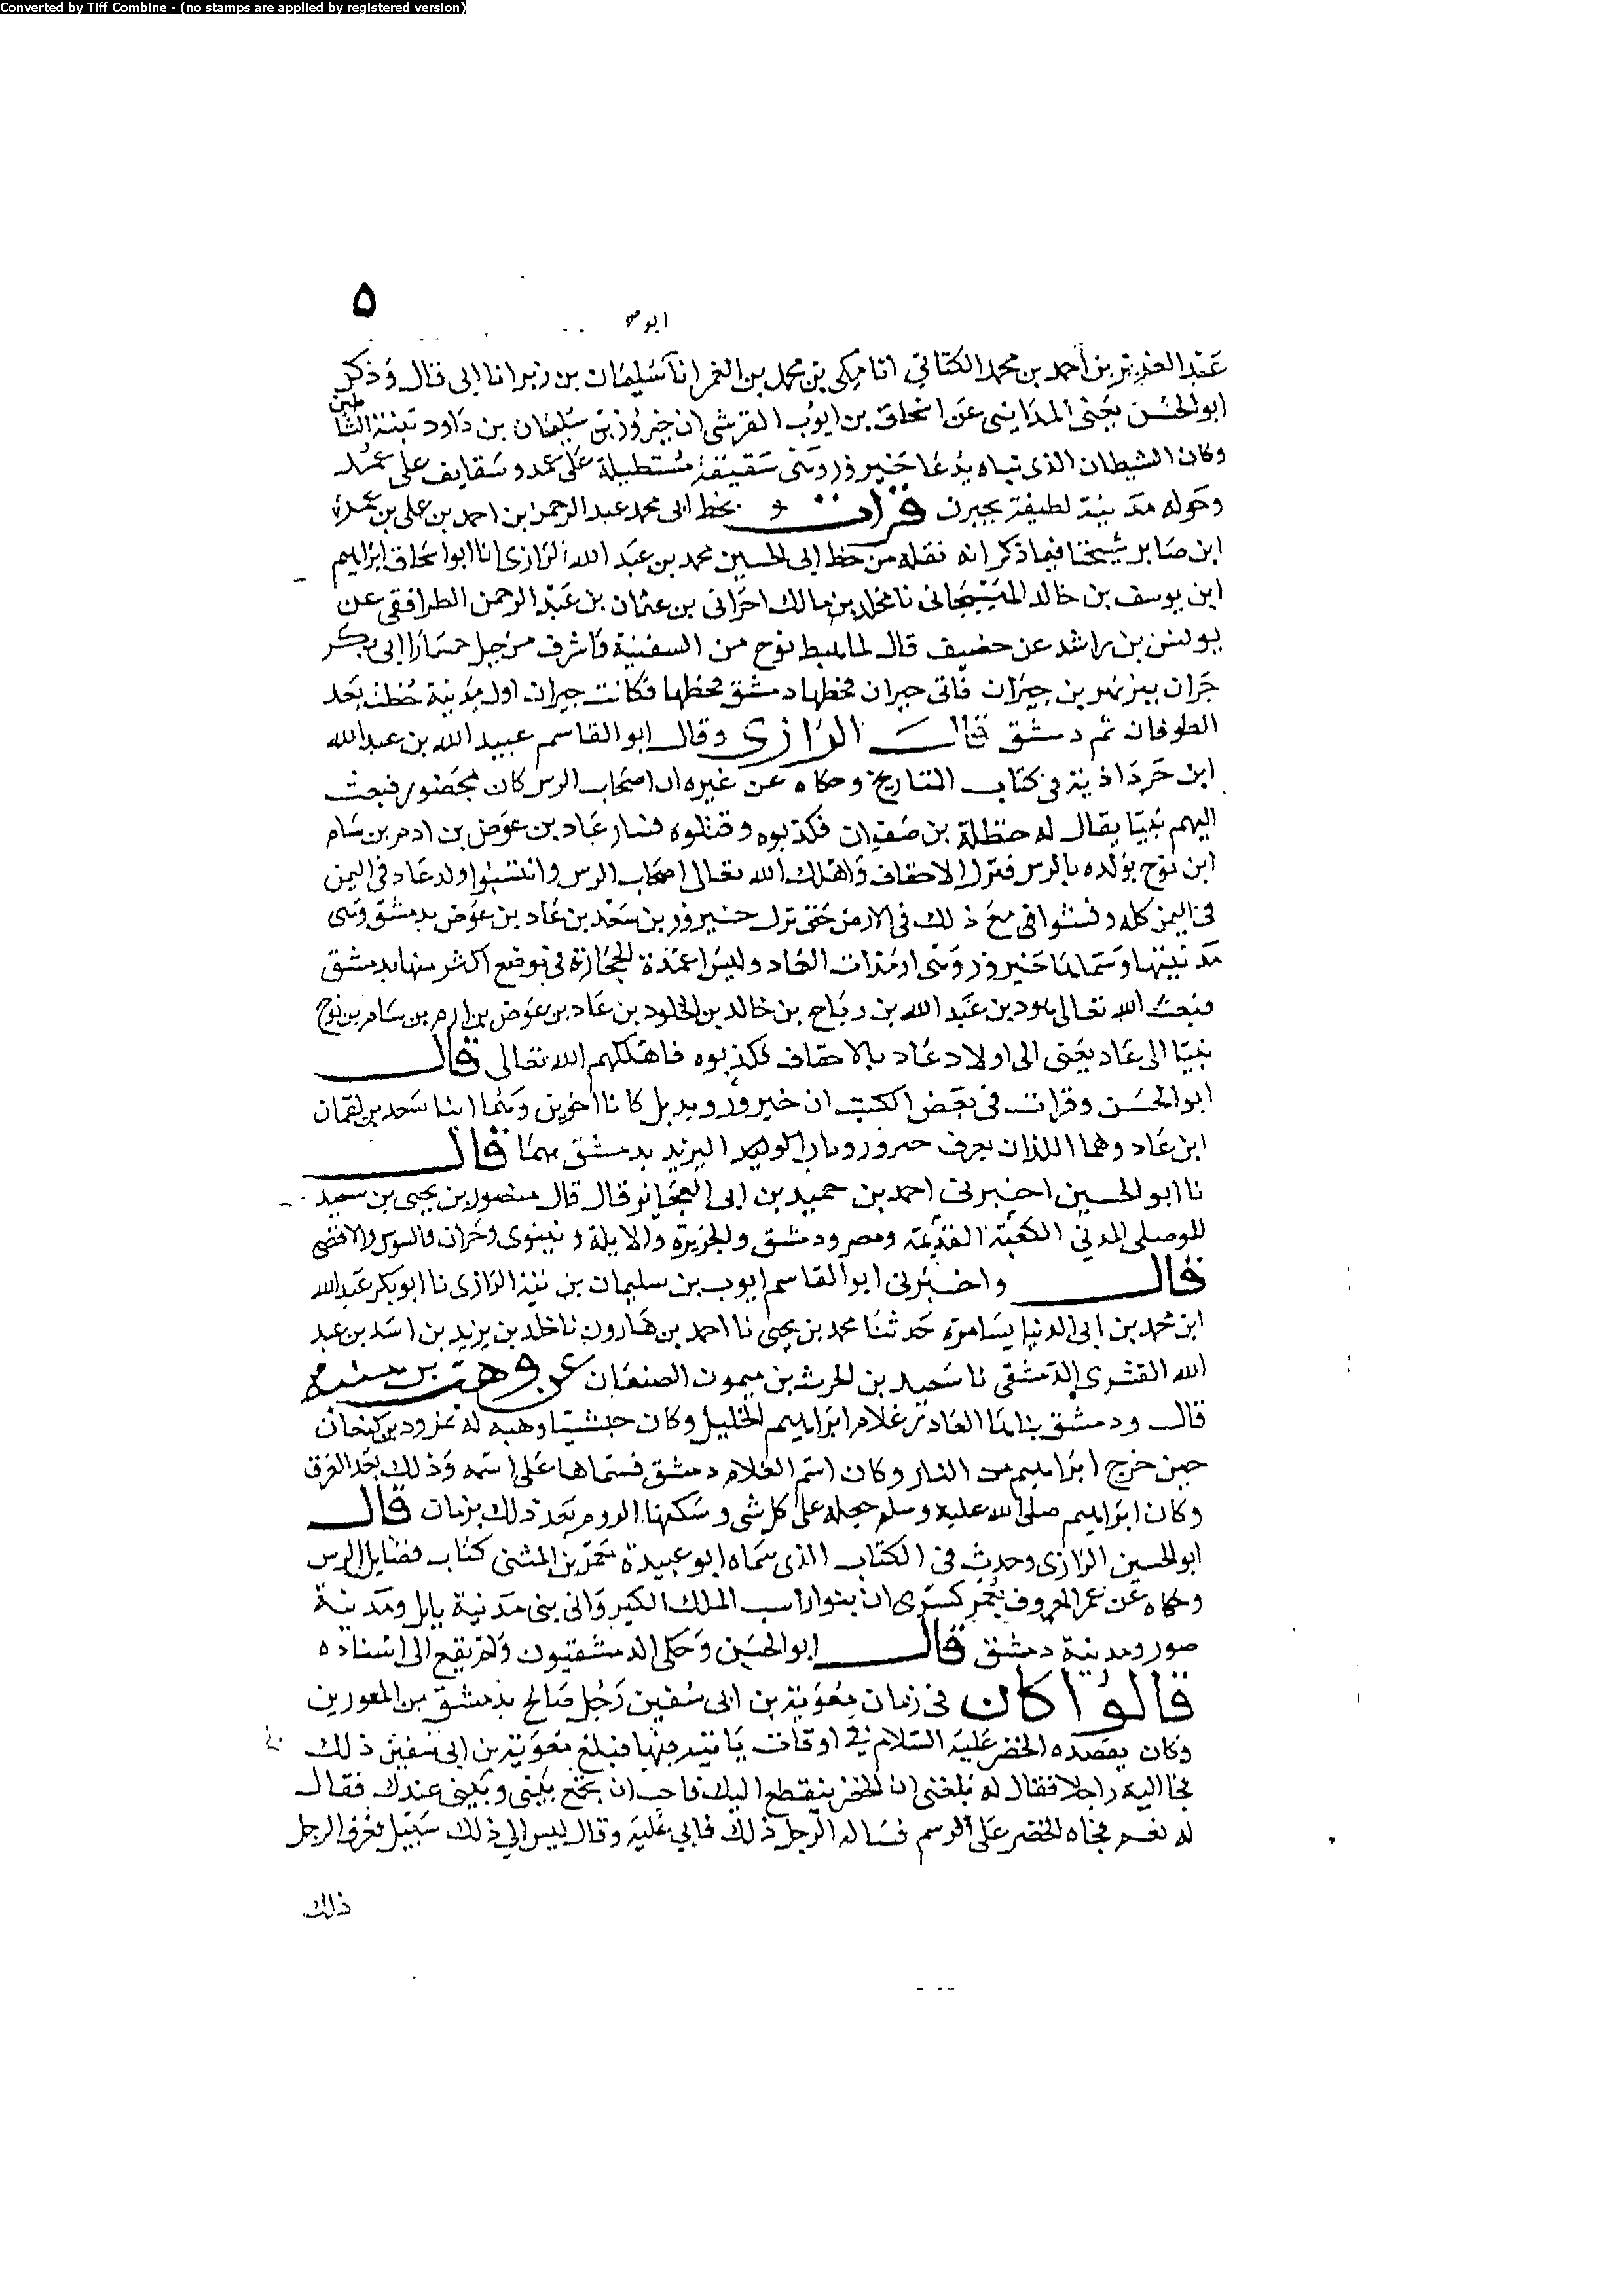 Converted by Tiff Combine - (no stamps are applied by registered version)
٥
ابو
عبد العزيز بن أحمد بن محمد الكتاني انا مكي بن محمد بن الغمر انا سليمان بن زبر انا ابى قال وذكر
ابو الحسن يعنى المداينى عن اسحاق بن ايوب القرشى ان جيرون بن سليمان بن داود بنته الشياطين
وكان الشيطان الذى بناه يدعا جيرون وهى سقيفة مستطيلة على عمد وسقايف على عمد
وحوله مدينة لطيفة بجيرن قرات بخط ابى محمد عبد الرحمن بن احمد بن على بن
ابن صابر شيخنا فيما ذكر انه نقله من خط ابى الحسين محمد بن عبد الله الرازى انا ابو اسحاق ابراهيم
ابن يوسف بن خالد نا مخلد بن مالك احرانى بن عثمان بن عبد الرحمن الطرايفى عن
يونس بن راشد عن خصيف قال لما هبط نوح من السفينة فاشرف من جبل حسمار ابى بكر
حران بين نهرين حيران فاتى حيران فخطها دمشق فخطها فكانت حيران اول مدينة خطت بعد
الطوفان ثم دمشق قال الرازى وقال ابو القاسم عبيد الله بن عبد الله
ابن خرداذبة فى كتاب التاريخ وحكاه عن غيره ان اصحاب الرس كان بحضور فبعث
اليهم نبيا يقال له حنظلة بن صفوان فكذبوه وقتلوه فسار عاد بن عوض بن ادم بن سام
ابن نوح بولده بالرس فنزل الاحقاف واهلك الله تعالى اصحاب الرس وانتشبوا ولد عاد فى اليمن
فى اليمن كله وفشوا فى مع ذلك فى الارض حتى نزل جيرون بن سعد بن عاد بن عوض بدمشق وبنى
مدينتها وسماها جيرون وهى ارم ذات العاد وليس اعمدة الحجارة فى موضع اكثر منها بدمشق
فبعث الله تعالى هود بن عبد الله بن رباح بن خالد بن الخلود بن عاد بن عوض بن ارم بن سام بن نوح
نبيا الى عاد يعنى الى اولاد عاد بالاحقاف فكذبوه فاهلكهم الله تعالى قال
ابو الحسن وقرات فى بعض الكتب ان جيرون وبريد كانا اخوين وهما ابنا سعد بن لقمان
ابن عاد وهما اللذان يعرف جيرون وباب البريد بدمشق بهما قال
نا ابو الحسين اخبرنى احمد بن حميد بن ابى العجايز قال قال منصور بن يحيى بن سعيد
الموصلى المدنى الكعبة القديمة ومصر ودمشق والجزيرة والابلة ونينوى وحران والسوس والاقصى
قال واخبرنى ابو القاسم ايوب بن سليمان بن الرازى نا ابو بكر عبد الله
ابن محمد بن ابى الدنيا بسامرة حدثنا محمد بن يحيى نا احمد بن هارون نا خلد بن يزيد بن اسد بن عبد
الله القشرى الدمشقى نا سعيد بن الحرث بن ميمون الصنعان عن وهب بن منبه
قال ودمشق بناها العادر غلام ابراهيم الخليل وكان حبشيا وهبه له نمرود بن كنعان
حين خرج ابراهيم من النار وكان اسم الغلام دمشق فسماها على اسمه وذلك بعد الغرق
وكان ابراهيم صلى الله عليه وسلم جعله على كل شى وسكنها الروم بعد ذلك بزمان قال
ابو الحسين الرازى وحديث فى الكتاب الذى سماه ابو عبيدة معمر بن المثنى كتاب فضايل الفرس
وحكاه عن عمر المعروف بعمر كسرى ان بيوراسب الملك الكبير وانى بنى مدينة بابل ومدينة
صور ومدينة دمشق قال ابو الحسين وحكى الدمشقيون ولم يقع الى اسناده
قالوا كان فى زمان معوية بن ابى سفين رجل صالح بدمشق من المعورين
وكان يقصده الخضر عليه السلام فى اوقات ياتيه فيها فبلغ معوية بن ابى سفين ذلك
فجا اليه راجلا فقال له بلغنى ان الخضر ينقطع اليك فاحب ان تجمع بينى وبينه عندك فقال
له نعم فجاه الخضر على الرسم فساله الرجل ذلك فابى عليه وقال ليس الى ذلك سبيل فعرف الرجل
ذلك